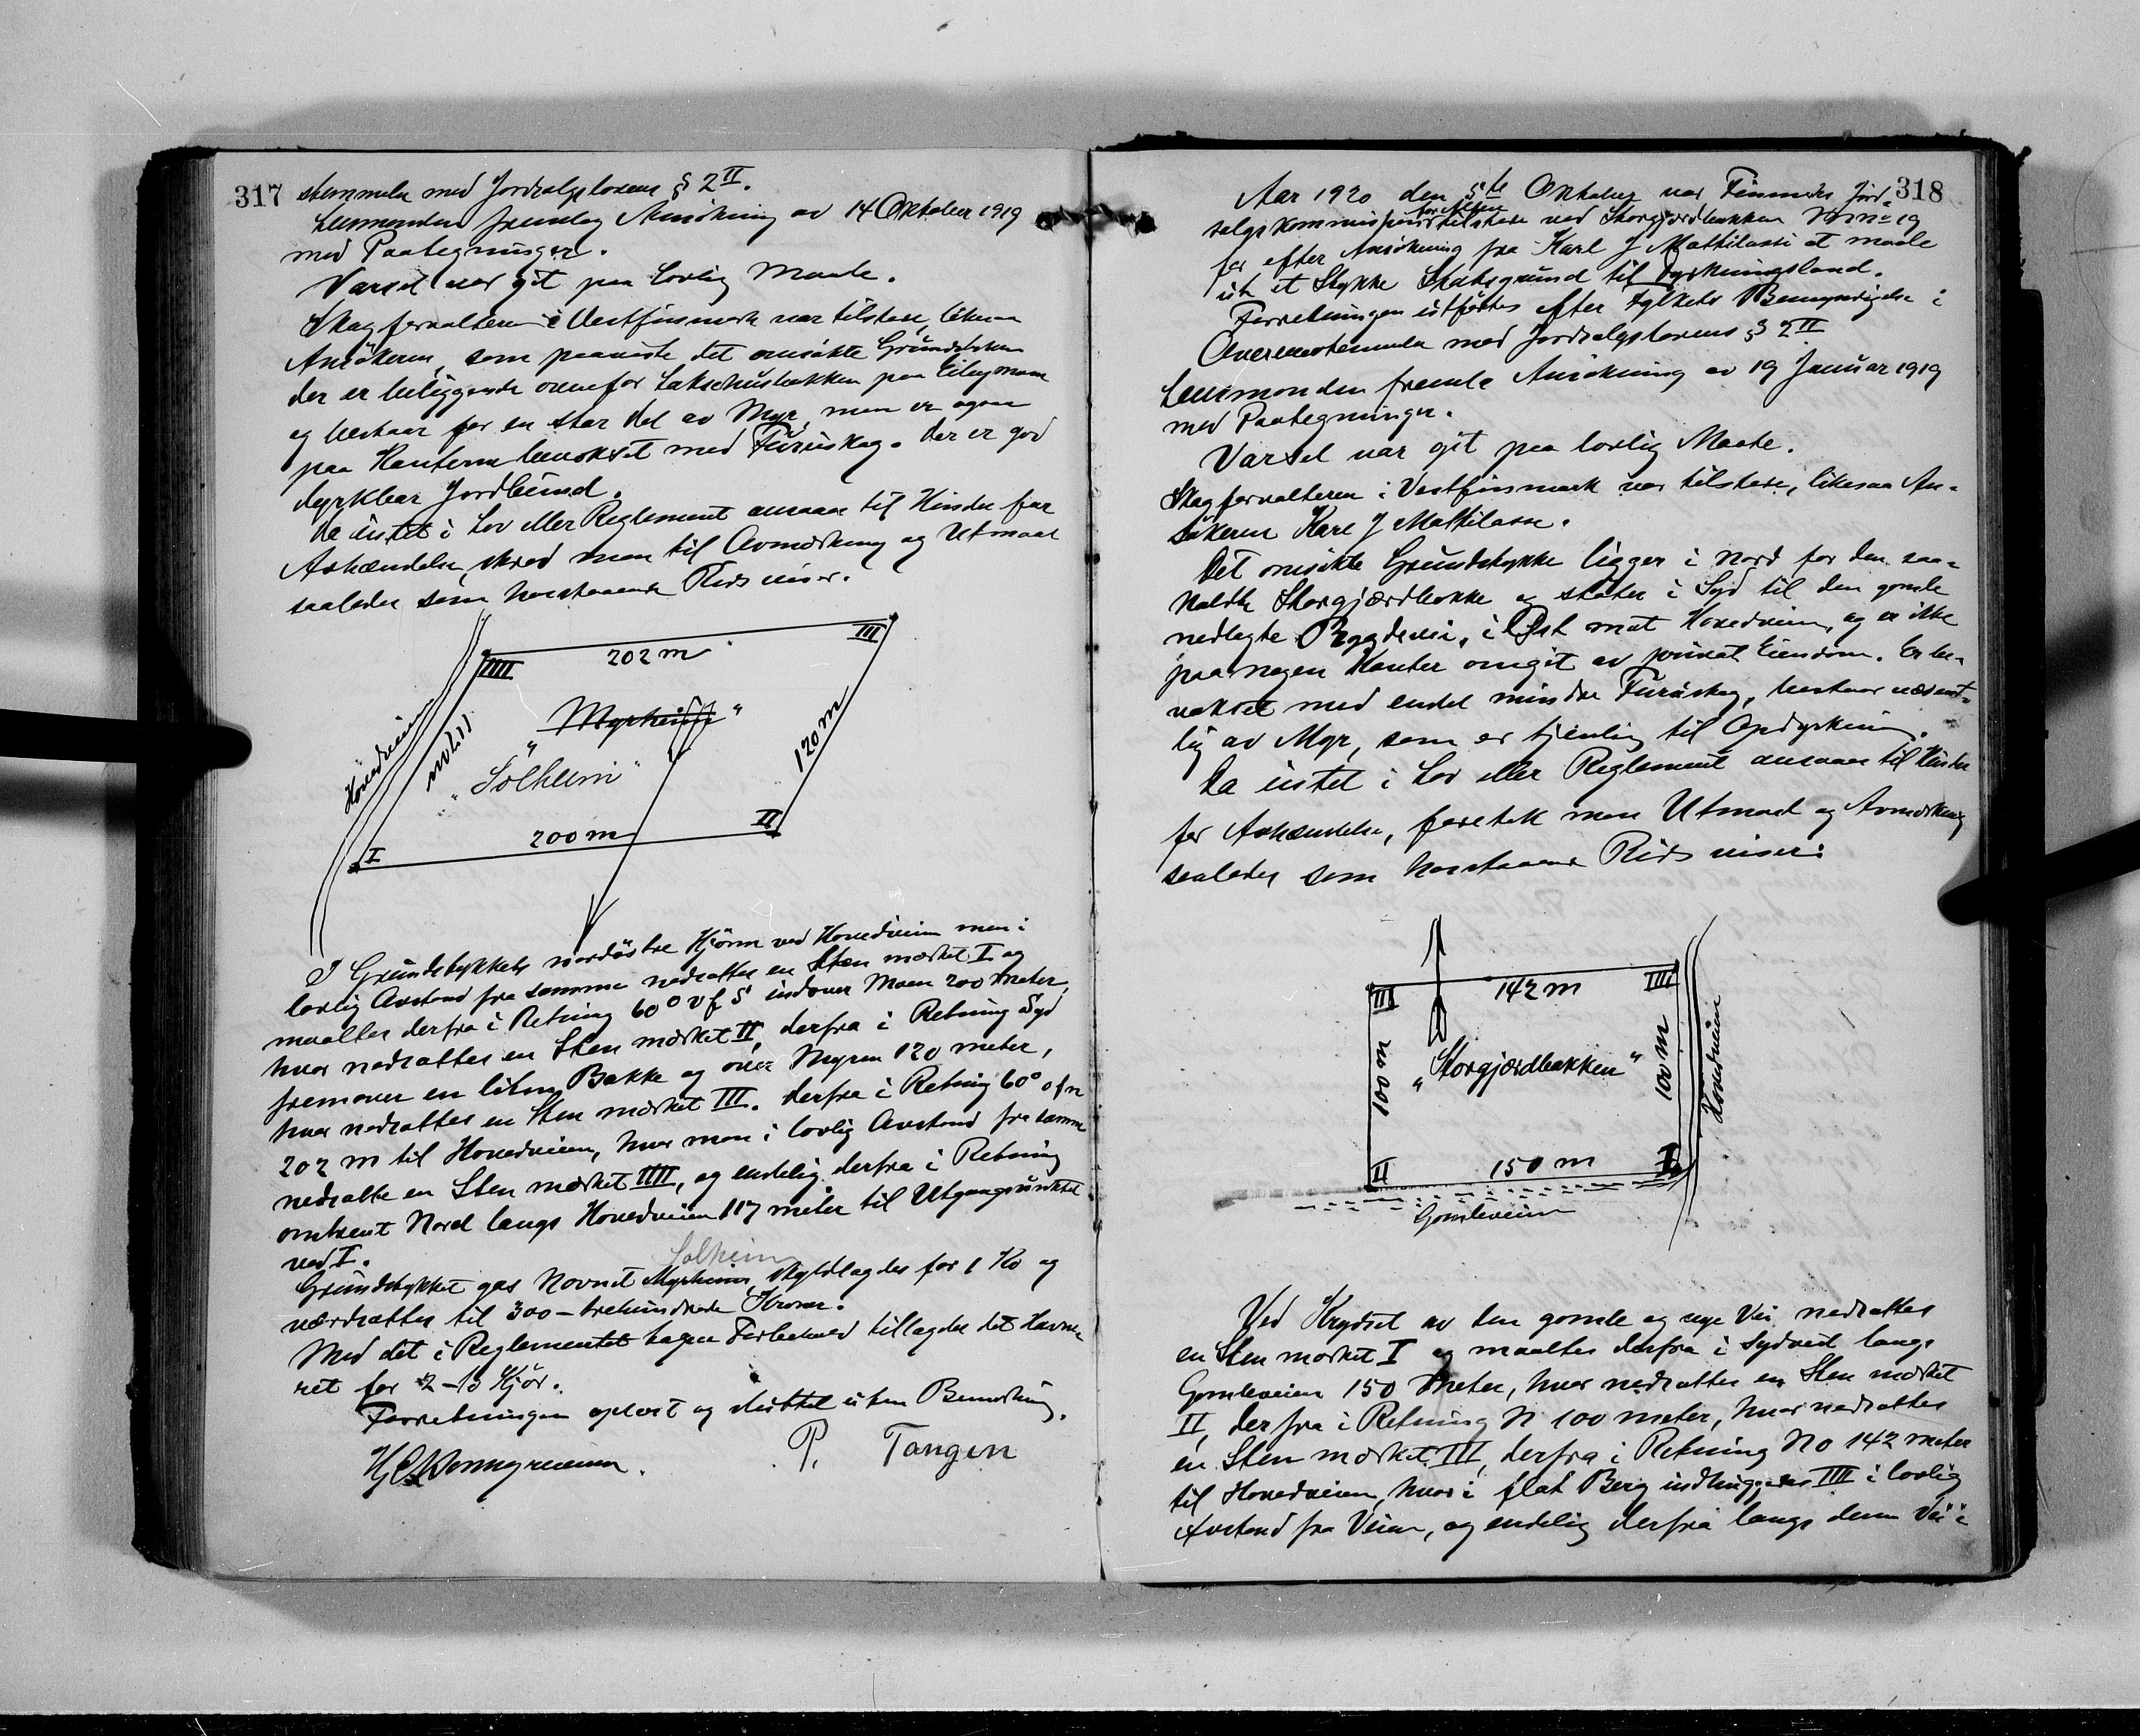 317
stemmelse med Jordsalgslovens § 2 II.
Lensmanden fremlag Ansökning av 14 Oktober 1919
med Paategninger.
Varsel var git paa lovlig Maate.
Skogforvalteren i Vestfinmark var tilstede, likesaa
Ansökeren, som paaviste det omsökte Grundstykke
der er beliggende ovenfor Laksehusbakken paa
og bestaar for en stor del av Myr, men er ogsaa
paa Kanterne bevokset med Furuskog. Der er god
dyrkbar Jordbund.
Da intet i Lov eller Reglement ansaaes til Hinder for
Avhændelse, skred man til Avmerkning og Utmaal
saaledes som hosstaaende Rids viser.
202 m
IIII
III
Hovedveien
117 m
"Myrheim"
"Solheim"
120 m
200 m
I
II
I Grundstykkets nordöstre Hjörne ved Hovedveien men i
lovlig Avstand fra samme nedsattes en Sten merket I og
maaltes derfra i Retning 60° v f S indover Moen 200 meter,
hvor nedsattes en Sten merket II, derfra i Retning Syd
fremover en liten Bakke og over Myren 120 meter,
hvor nedsattes en Sten merket III. derfra i Retning 60° o f n
202 m til Hovedveien, hvor man i lovlig Avstand fra samme
nedsatte en Sten merket IIII, og endelig derfra i Retning
omtrent Nord langs Hovedveien 117 meter til Utgangspunktet
ved I.
Solheim
Grundstykket gas Navnet Myrheim, skyldlagdes for 1 Kr og
værdsattes til 300 – trehundrede Kroner.
Med det i Reglementet tagne Forbehold tillagdes det Havne-
ret for 2-3 Kjör.
Forretningen oplæst og sluttet uten Bemerkning.
P. Tangen
318
Aar 1920 den 5te Oktober var Finmarks Jord-
salgskommission for Alten tilstede ved Storgjærdbakken
for efter Ansökning fra Karl J Mathilassi at maale
ut et Stykke Statsgrund til Dyrkningsland.
Forretningen utförtes efter Fylkets Bemyndigelse i
Overensstemmelse med Jordsalgslovens § 2 II
Lensmanden fremla Ansökning av 19 Januar 1919
med Paategninger.
Varsel var git paa lovlig Maate.
Skogforvalteren i Vestfinmark var tilstede, likesaa An-
sökeren Karl J Mathilassi.
Det omsökte Grundstykke ligger i Nord for den saa-
kaldte Storgjærdbakke og stöter i Syd til den gamle
nedlagte Bygdevei, i Öst mot Hovedveien, og er ikke
paa nogen Kanter omgit av privat Eiendom. Er be-
vokset med endel mindre Furuskog, bestaar væsent-
lig av Myr, som er tjenlig til Opdyrkning.
Da intet i Lov eller Reglement ansaaes til Hinder
for Avhændelse, foretok man Utmaal og Avmerkning
saaledes som hosstaaende Rids viser:
142 m
III
IIII
100 m
"Storgjærdbakken"
100 m
Hovedveien
150 m
II
I
Gamleveien
Ved Krydset av den gamle og nye Vei nedsattes
en Sten merket I og maaltes derfra i Sydvest langs
Gamleveien 150 Meter, hvor nedsattes en Sten merket
II, derfra i Retning N 100 meter, hvor nedsattes
en Sten merket III, derfra i Retning NO 142 meter
til Hovedveien, hvor i flat Berg indhuggedes IIII i lovlig
Avstand fra Veien, og endelig derfra langs denne Vei i